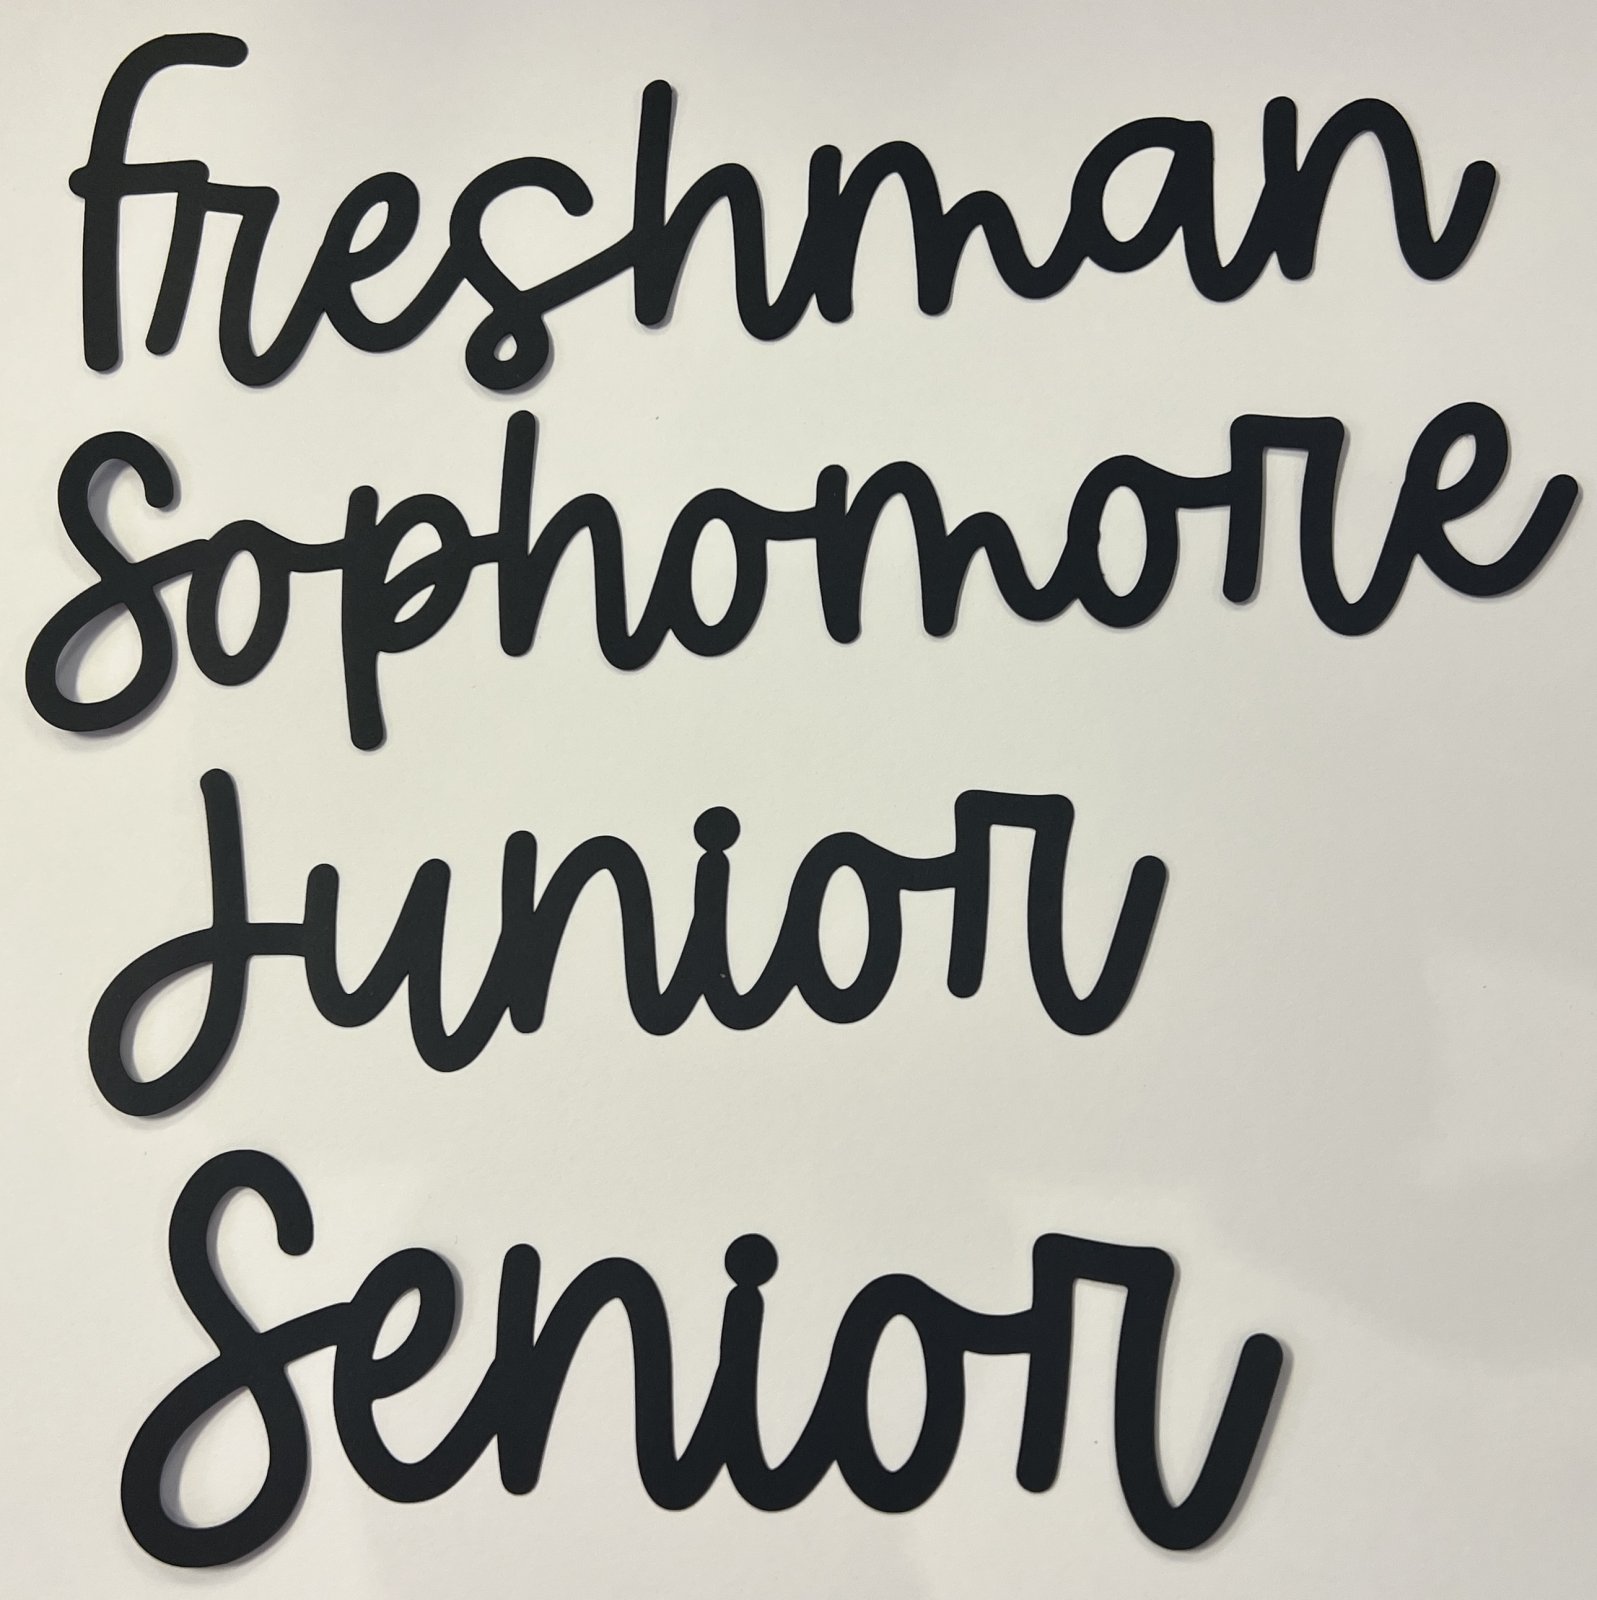 freshman
Sophomore
Junior
Senior